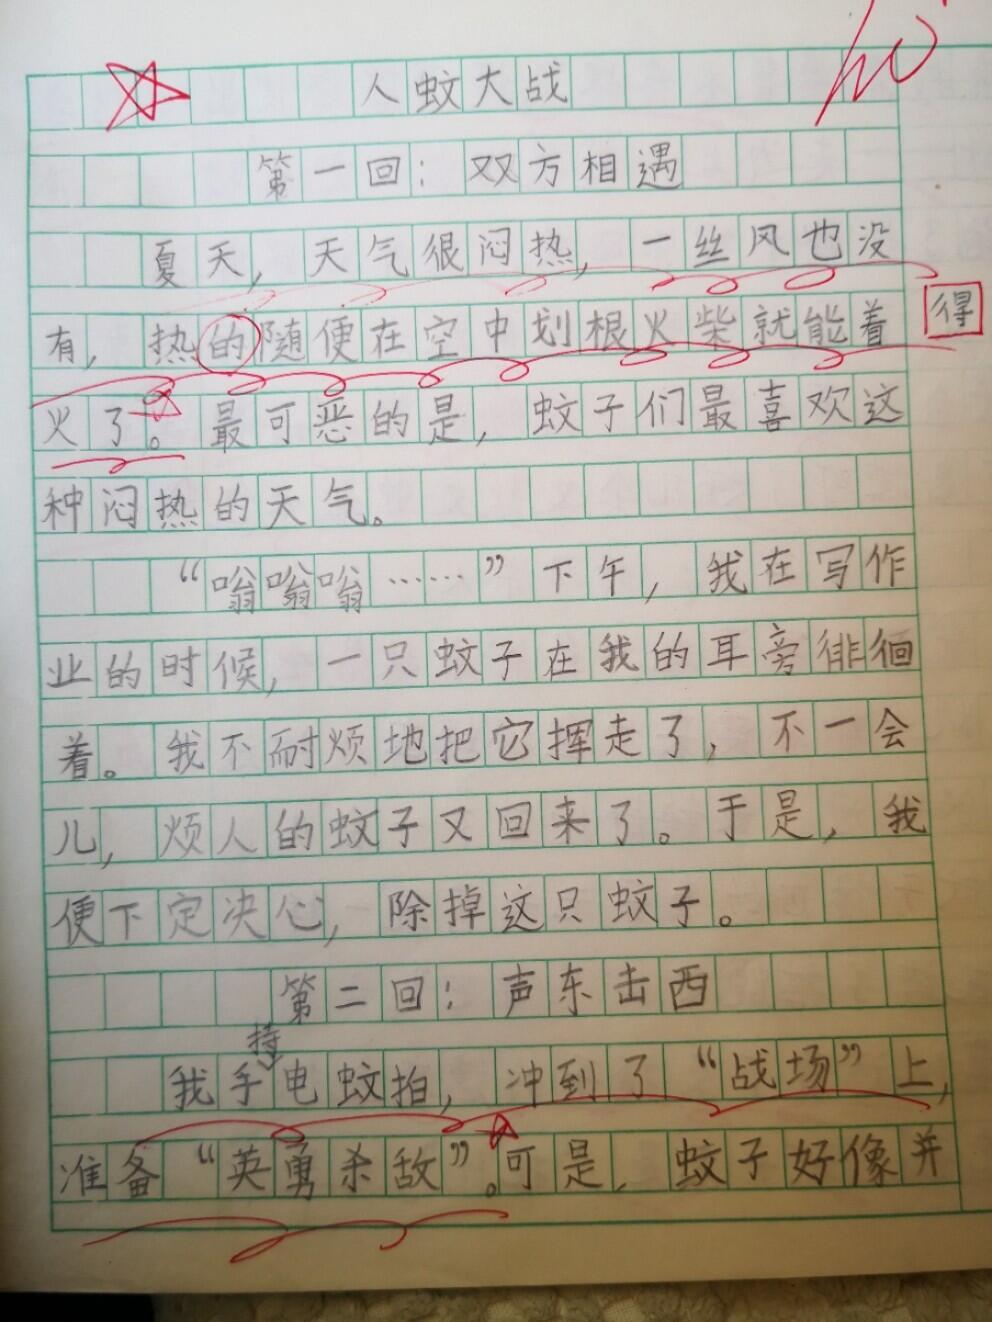 人蚊大战
第一回：双方相遇
夏天，天气很闷热，一丝风也没
有，热的随便在空中划根火柴就能着
得
火了。最可恶的是，蚊子们最喜欢这
种闷热的天气。
“嗡嗡嗡……”下午，我在写作
业的时候，一只蚊子在我的耳旁徘徊
着。我不耐烦地把它挥走了，不一会
儿，烦人的蚊子又回来了。于是，我
便下定决心，除掉这只蚊子。
第二回：声东击西
持
我手电蚊拍，冲到了“战场”上，
准备“英勇杀敌”。可是，蚊子好像并